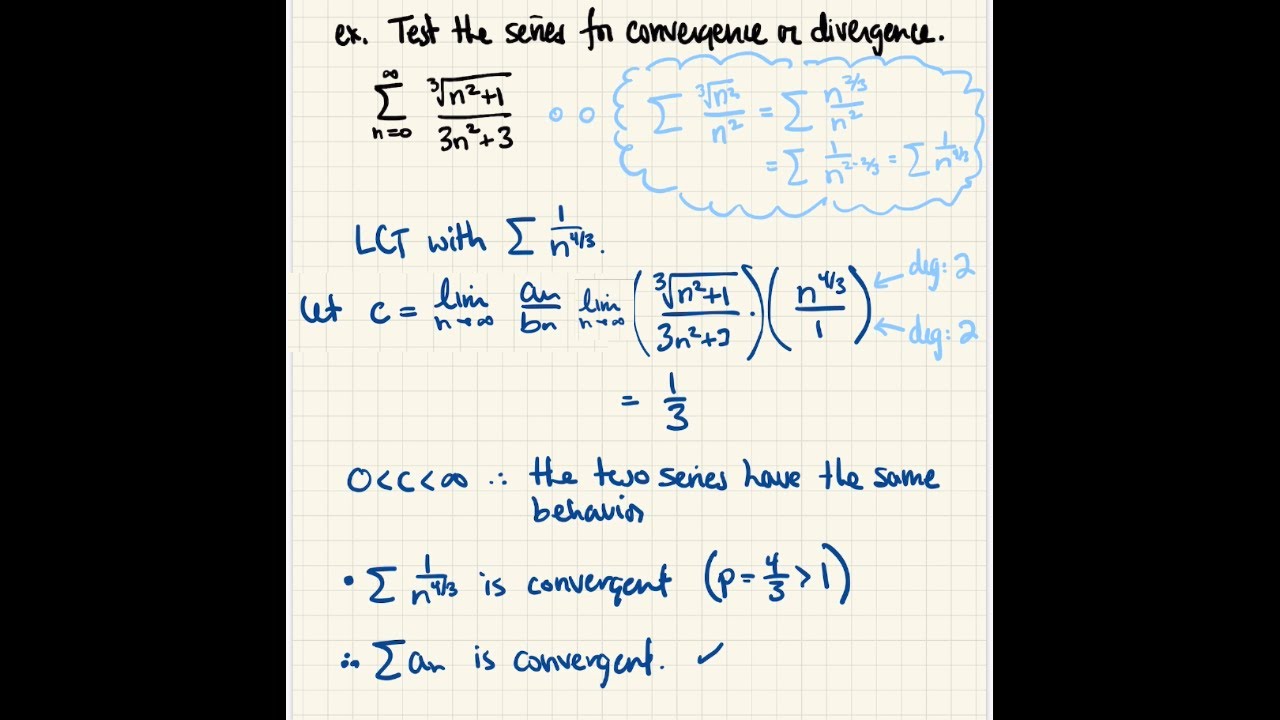 ex. Test the series for convergence or divergence.
∞ ∑ n=0 ∛(n²+1) / (3n²+3)
∑ ∛(n²) / n² = ∑ n^(2/3) / n²
= ∑ 1/n^(2-2/3) = ∑ 1/n^(4/3)
LCT with ∑ 1/n^(4/3).
Let c = lim n→∞ an/bn lim n→∞ (∛(n²+1) / (3n²+3) ·)(n^(4/3) / 1) ← deg: 2
← deg: 2
= 1/3
0<c<∞ ∴ the two series have the same
behavior
• ∑ 1/n^(4/3) is convergent (p = 4/3 > 1)
∴ ∑ an is convergent. ✓